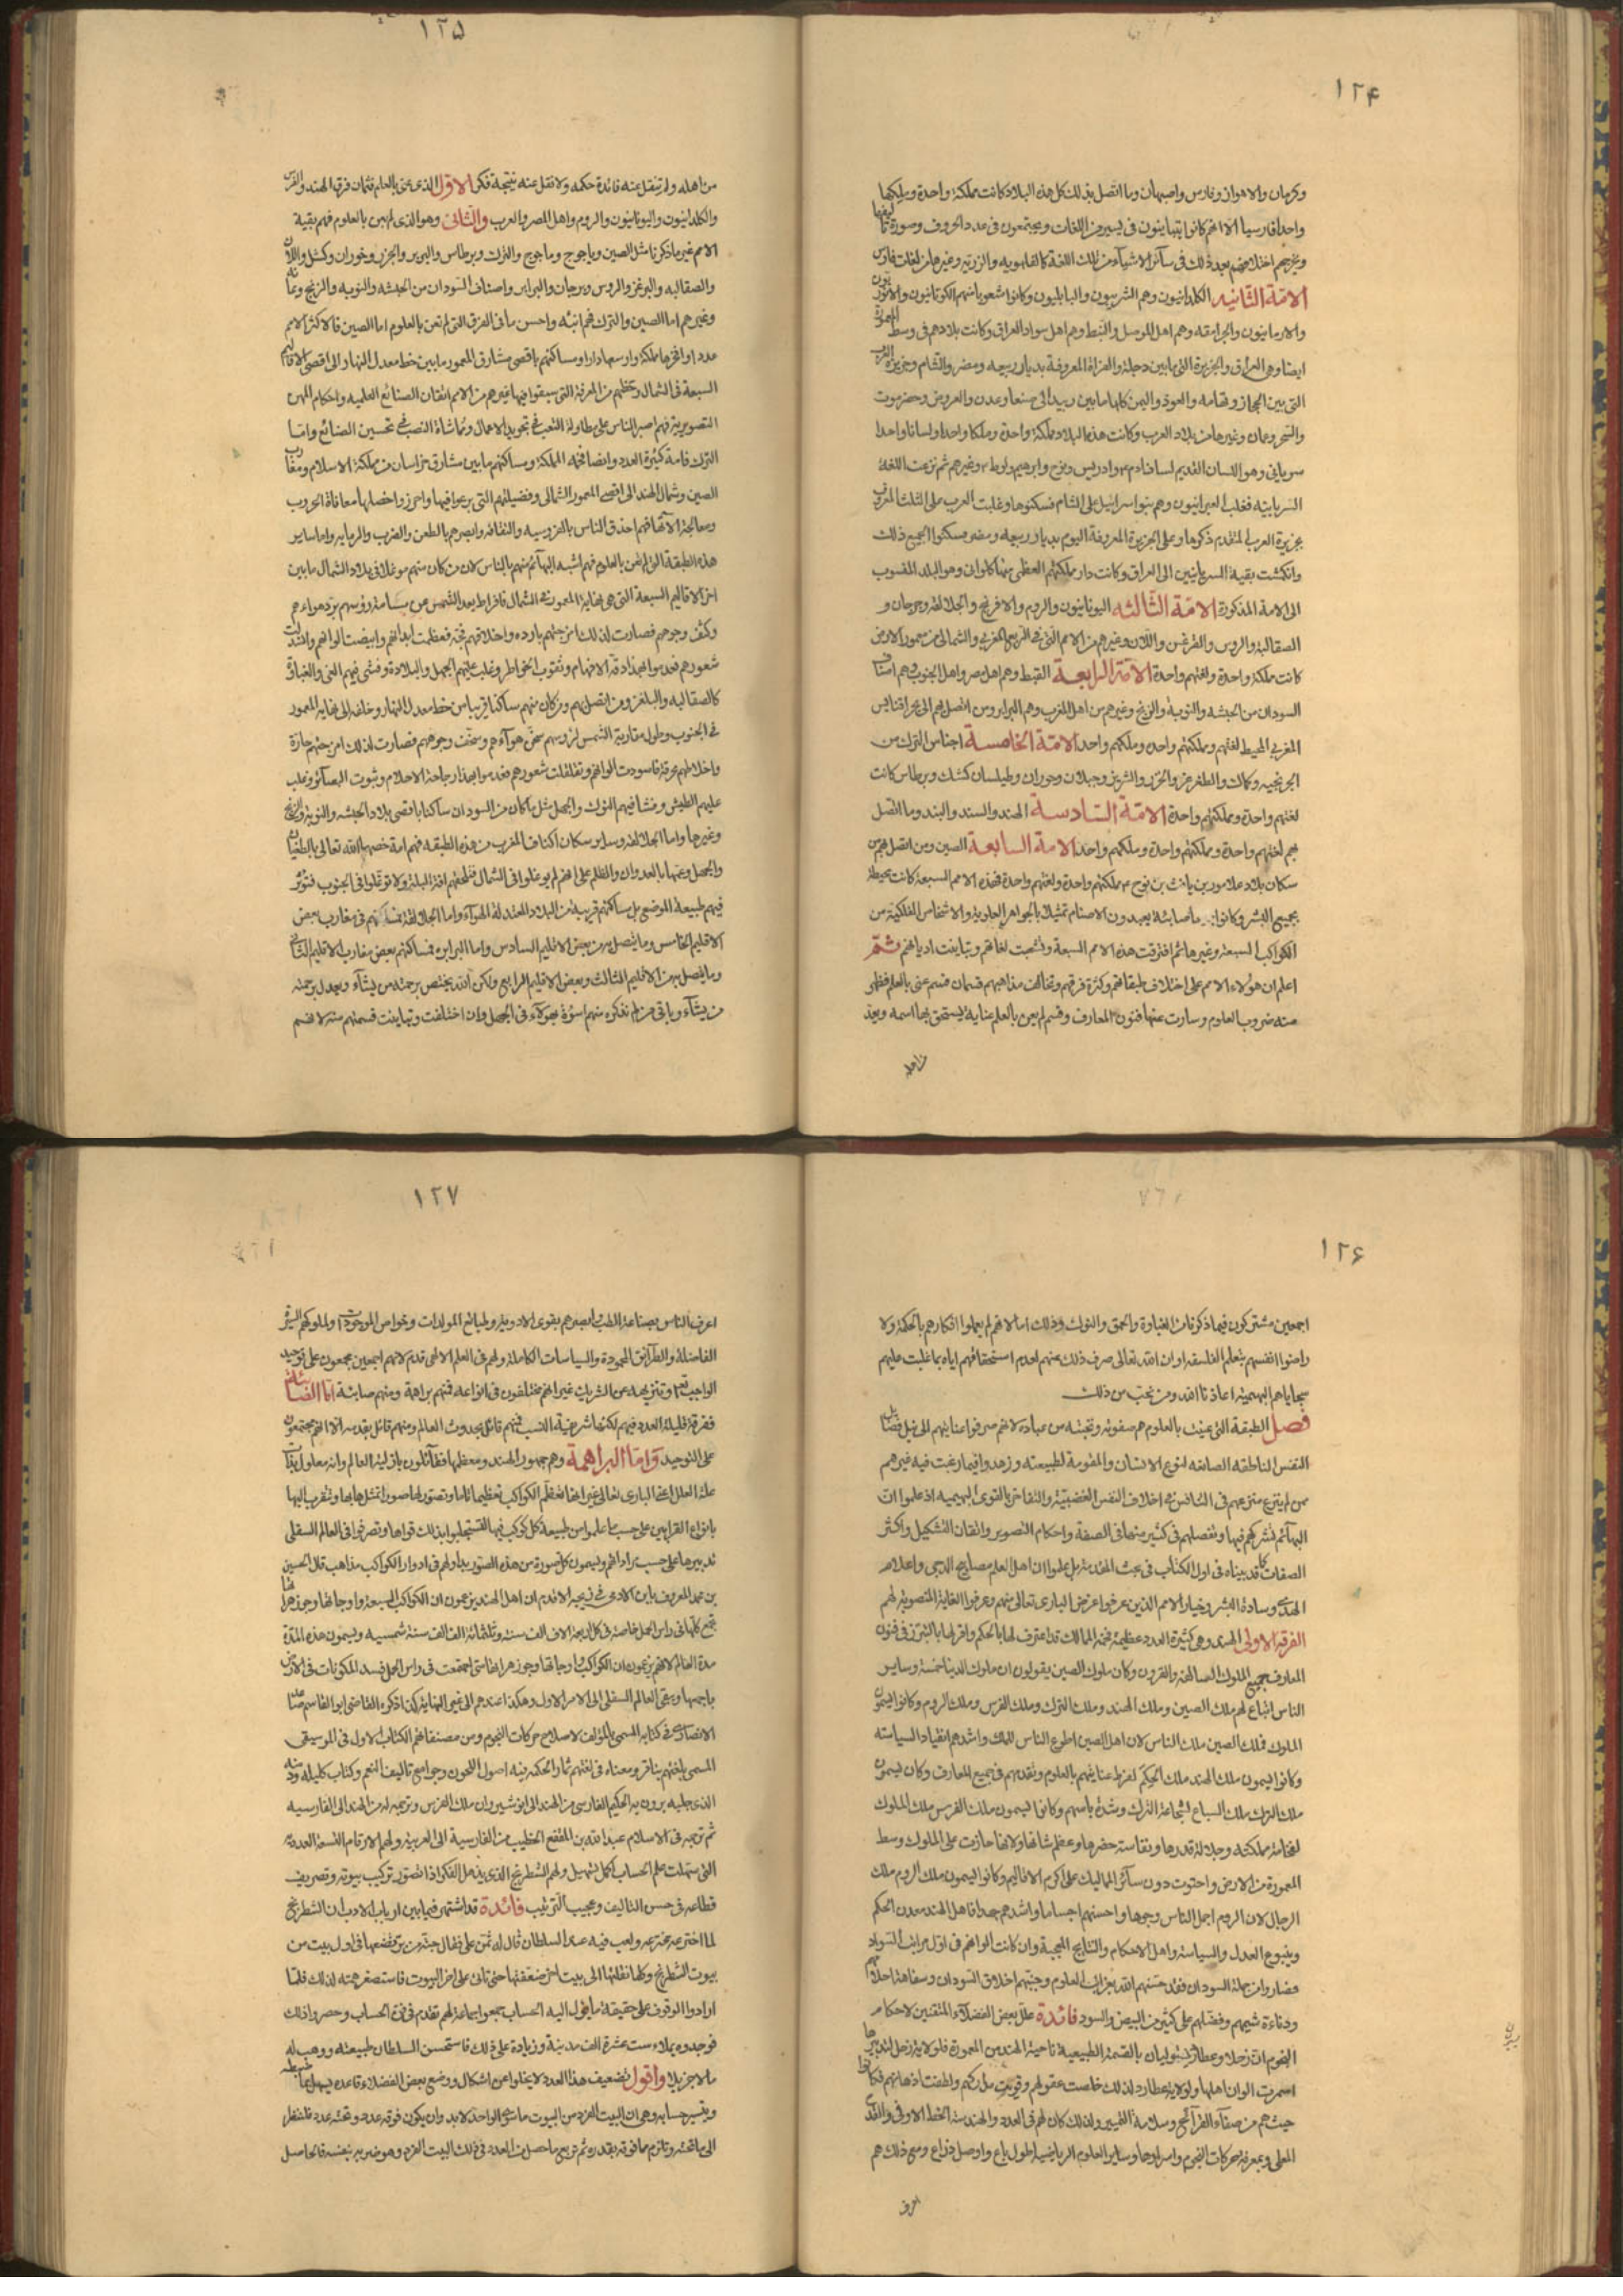 ١٢۴
وكرمان والاهواز وفارس واصبهان وما اتصل بذلك كل هذه البلاد كانت مملكة واحدة وملكها
واحدا فارسيا الا انهم كانوا يتباينون فى يسير من اللغات ويجتمعون فى عدد الحروف وصورة تأليفها
ويخرجهم اختلافهم بعد ذلك فى سائر الاشياء من تلك اللغة كالفهلويه والزريه وغيرها من لغات فارس
الامّة الثانيه الكلدانيون وهم السريانيون والبابليون وكانوا شعوبا منهم الكوثانيون والاثوريون
والارمانيون والجرامقه وهم اهل الموصل والنبط وهم اهل سواد العراق وكانت بلادهم فى وسط المعمورة
ايضا وهى العراق والجزيرة التى ما بين دجلة والفراة المعروفة بديار ربيعه ومضر والشام وجزيرة العرب
التى بين الحجاز وتهامه والعوذ واليمن كلها ما بين زبيد الى صنعا وعدن والعروض وحضرموت
والشحر وعمان وغيرها من بلاد العرب وكانت هذه البلاد مملكة واحدة وملكا واحدا ولسانا واحدا
سريانى وهو اللسان القديم لسان ادم وادريس ونوح وابرهيم ولوط وغيرهم ثم تفرعت اللغة
السريانية فغلب العبرانيون وهم بنو اسرائيل على الشام فسكنوها وغلبت العرب على الثلث المعروف
بجزيرة العرب المتقدم ذكرها وعلى الجزيرة المعروفة اليوم بديار ربيعه ومضر فسكنوا جميع ذلك
وانكمشت بقية السريانيين الى العراق وكانت دار مملكتهم العظمى منها كلواذان وهو البلد المنسوب
الى الامة المذكورة الامّة الثالثه اليونانيون والروم والافرنج والجلالقه وبرجان و
الصقالبة والروس والبرغس واللان وغيرهم من الامم التى فى الربع الغربى والشمالى من معمور الارض
كانت مملكة واحدة ولغتهم واحدة الامّة الرابعة القبط وهم اهل مصر واهل الجنوب وهم اصناف
السودان من الحبشه والنوبة والزنج وغيرهم من اهل المغرب وهم البرابر ومن اتصل بهم الى بحر اقنابس
المغربى المحيط لغتهم ومملكتهم واحدة وملكهم واحد الامّة الخامسة اجناس الترك من
الخرلخيه وكماك والطغرغز والخزر والسرير وجيلان وخوران وطيلسان كشك وبرطاس كانت
لغتهم واحدة ومملكتهم واحدة الامّة السّادسة الهند والسند والبند وما اتصل
بهم لغتهم واحدة ومملكتهم واحدة وملكهم واحد الامة السابعة الصين ومن اتصل بهم من
سكان بلاد عامور بن يافث بن نوح ع م مملكتهم واحدة ولغتهم واحدة فهذه الامم السبعة كانت محيطة
بجميع البشر وكانوا جميعا صابئة يعبدون الاصنام تمثيلا بالجواهر العلوية والاشخاص الفلكية من
الكواكب السبعة وغيرها ثم افترقت هذه الامم السبعة وتشعبت لغاتهم وتباينت اديانهم ثم
اعلم ان هؤلاء الامم على اختلاف طبقاتهم وكثرة فرقهم وتخالف مذاهبهم قسمان قسم عنى بالعلم فظهر
منه ضروب العلوم وسارت عنها فنون المعارف وقسم لم يعن بالعلم عناية يستحق بها اسمه ويعد
من اهله
١٢۵
من اهله ولم ينقل عنه فائدة حكمه ولا نقل عنه نتيجة فكر الاوّل الذى عنى بالعلم ثمان فرق الهند والفرس
والكلدانيون واليونانيون والروم واهل المصر والعرب والثّانى وهو الذى لم يعن بالعلوم فهم بقية
الامم غير ما ذكرنا مثل الصين وياجوج وماجوج والترك وبرطاس والسرير والخزر وخوران وكشل واللان
والصقالبه والبرغز والروس وبرجان والبرابر واصناف السودان من الحبشه والنوبه والزنج وغانه
وغيرهم اما الصين والترك فهم انبه واحسن ما فى الفرق التى لم تعن بالعلوم اما الصين فالاكثر الامم
عددا وافخرها مملكة واوسعها دارا ومساكنهم باقصى مشارق المعمور ما بين خط معدل النهار الى اقصى الاقاليم
السبعة فى الشمال وحظهم من المعرفة التى سبقوا فيها غيرهم من الامم اتقان الصنائع العلميه واحكام المهن
التصويرية فهم اصبر الناس على مطاولة التعب فى تجويد الاعمال ومقاساة النصب فى تحسين الصنائع وامّا
الترك فامة كثيرة العدد وايضا فخمه المملكة ومساكنهم ما بين مشارق خراسان من مملكة الاسلام ومغارب
الصين وشمال الهند الى اقصى المعمور الشمالى وفضيلتهم التى برعوا فيها واحرزوا خصلها معاناة الحروب
ومعالجة الآتها فهم احذق الناس بالفروسيه والثقافه وابصرهم بالطعن والضرب والرمايه واما ساير
هذه الطبقة التى لم تعن بالعلوم فهم اشبه البهائم منهم بالناس لان من كان منهم موغلا فى بلاد الشمال ما بين
اخر الاقاليم السبعة التى هى نهاية المعمور فى الشمال فافراط بعد الشمس عن مسامته رؤسهم برّد هواءهم
وكثف وجوههم فصارت لذلك امزجتهم بارده واخلاقهم فجّة فعظمت ابدانهم وابيضت الوانهم وانسدلت
شعورهم فعدموا بهذا دقة الافهام وثقوب الخواطر وغلب عليهم الجهل والبلادة وفشى فيهم العى والغباوة
كالصقالبه والبلغر ومن اتصل بهم ومن كان منهم ساكنا قريبا من خط معدل النهار وخلفه الى نهاية المعمور
فى الجنوب وطول مقاربة الشمس لرؤسهم سخّن هوآءهم وسخّف وجوههم فصارت لذلك امزجتهم حارّة
واخلاطهم محرقة فاسودت الوانهم وتفلفلت شعورهم فعدموا بهذا رجاحة الاحلام وثبوت البصائر وغلب
عليهم الطيش وفشا فيهم النوك والجهل مثل ما كان من السودان ساكنا باقصى بلاد الحبشه والنوبة والزنج
وغيرها واما الجلالقه وساير سكان اكناف المغرب من هذه الطبقه فهم امة خصها الله تعالى بالطغيان
والجهل وعمّها بالعدوان والظلم على انهم لم يوغلوا فى الشمال فتلحقهم افة البلة ولا توغلوا فى الجنوب فتؤثر
فيهم طبيعة الموضع بل مساكنهم قريبة من البلاد المعتدلة الهوآء واما الجلالقة فمساكنهم فى مغارب بعض
الاقليم الخامس وما يتصل به من بعض الاقليم السادس واما البرابره فمساكنهم بعض مغارب الاقليم الثانى
وما يتصل به من الاقليم الثالث وبعض الاقليم الرابع ولكن الله يختص برحمته من يشآء ويعدل برحمته
عن يشآء وباقى من لم نذكره منهم اسوة بهؤلآء فى الجهل وان اختلفت وتباينت قسمتهم منه لانهم
١٢۶
اجمعين مشتركون فيما ذكرنا من الغباوة والحمق والنوك وذلك اما لانهم لم يعملوا افكارهم بالحكمة ولا
راضوا انفسهم بتعلم الفلسفه او ان الله تعالى صرف ذلك عنهم لعدم استحقاقهم اياه بما غلبت عليهم
سجاياهم البهيمية اعاذنا الله ومن نحب من ذلك
فصل الطبقة التى عنيت بالعلوم هم صفوته ونخبته من عباده لانهم صرفوا عنايتهم الى نيل فضائل
النفس الناطقه الصانعه لنوع الانسان والمقومة لطبيعته وزهدوا فيما رغبت فيه غيرهم
ممن لم ينزع منزعهم فى التنافس فى اخلاق النفس الغضبيّة والتفاخر بالقوى البهيميه اذ علموا انّ
البهائم تشركهم فيها وتفضلهم فى كثير منها فى الصفة واحكام التصوير واتقان التشكيل واكثر
الصفات كما قد بيناه فى اول الكتاب فى بحث الهندسة بل علموا ان اهل العلم مصابيح الدجى واعلام
الهدى وسادة البشر وخيار الامم الذين عرفوا غرض البارى تعالى منهم وعرفوا الغاية المنصوبة لهم
الفرقه الاولى الهند وهى كثيرة العدد عظيمة فخمة الممالك قد اعترف لها بالحكم واقر لها بالتبرز فى فنون
المعارف جميع الملوك السالفة والقرون وكان ملوك الصين يقولون ان ملوك الدنيا خمسة وساير
الناس اتباع لهم ملك الصين وملك الهند وملك الترك وملك الفرس وملك الروم وكانوا يسمون
الملوك فملك الصين ملك الناس لان اهل الصين اطوع الناس للملك واشدهم انقيادا لسياسته
وكانوا يسمون ملك الهند ملك الحِكَم لفرط عنايتهم بالعلوم وتقدمهم فى جميع المعارف وكان يسمون
ملك الترك ملك السباع لشجاعة الترك وشدة باسهم وكانوا يسمون ملك الفرس ملك الملوك
لفخامة مملكته وجلالة قدرها ونفاسة حضرها وعظم شانها ولانها حازت على الملوك وسط
المعمورة من الارض واحتوت دون سائر الممالك على اكرم الاقاليم وكانوا يسمون ملك الروم ملك
الرجال لان الروم اجمل الناس وجوها واحسنهم اجساما واشدهم جهدا فاهل الهند معدن الحكم
وينبوع العدل والسياسة واهل الاحكام والنتايج العجيبة وان كانت الوانهم فى اول مراتب السّواد
فصاروا من جملة السودان فقد جنّبهم الله بغرائب العلوم وجنّبهم اخلاق السودان وسفاهة احلامهم
ودناءة شيمهم وفضّلهم على كثير من البيض والسود فائدة علل بعض الفضلآء المتقنين لاحكام
النجوم ان زحل وعطارد يتوليان بالقسمة الطبيعية ناحية الهند من المعمورة فلولاية زحل لتدبيرها
اسمرت الوان اهلها ولولاية عطارد لذلك خلصت عقولهم وقويت مداركهم ولطفت اذهانهم فكانوا
حيث هم من صفآء القرآئح وسلامة التمييز ولذلك كان لهم فى العدد والهندسة الخط الاوفى والقدح
المعلى وبمعرفة حركات النجوم واسرارها وساير العلوم الرياضية اطول باع واوصل ذراع ومع ذلك هم
اعرف
١٢٧
اعرف الناس بصناعة الطب وابصرهم بقوى الادوية وطبايع المولدات وخواص الموجودات ولملوكهم السيرة
الفاضلة والطرائق المحمودة والسياسات الكاملة ولهم فى العلم الالهى قدم لانهم اجمعين مجمعون على توحيد
الواجب تعالى وتنزيهه عن الشريك غير انهم مختلفون فى انواعه فمنهم براهمة ومنهم صابئة امّا الصّابئة
ففرقة قليلة العدد فيهم لكنها شريفة النسب فمنهم قائل بحدوث العالم ومنهم قائل بقدمه الّا انهم مجتمعون
على التوحيد وامّا البراهمة وهم جمهور الهند ومعظمها فقائلون بازلية العالم وانه معلول بذات
علة العلل اعنى البارى تعالى غير انها تعظّم الكواكب تعظيما تاما وتصوّر لها صورا تمثلها بها وتتقرب اليها
بانواع القرابين على حسب ما علموا من طبيعة كل كوكب منها لتستجلبوا بذلك قواها وتصرفوا فى العالم السفلى
تدبيرها على حسب مراداتهم ويسمون كل صورة من هذه الصور بدا ولهم فى ادوار الكواكب مذاهب قال الحسين
بن محمد المعروف بابن الادمى فى زيجه الاقدم ان اهل الهند يزعمون ان الكواكب السبعة واوجاتها وجوزهراتها
تجمع كلها فى راس الحمل خاصة فى كل اربعة الاف الف سنة وثلثمائة الف الف سنة شمسيه ويسمون هذه المدّة
مدة العالم لانهم يزعمون ان الكواكب واوجاتها وجوزهراتها متى اجتمعت فى راس الحمل فسد المكونات فى الارض
باجمعها وبقى العالم السفلى الى الامر الاول وهكذا عندهم الى غير النهاية كذا ذكره القاضى ابو القاسم صاعد
الانصارى فى كتابه المسمى بالمؤلف لاصلاح حركات النجوم ومن مصنفاتهم الكتاب الاول فى الموسيقى
المسمى بلغتهم بنافر ومعناه فى لغتهم ثمار الحكمه فيه اصول اللحون وجوامع تاليف النغم وكتاب كليله ودمنه
الذى جلبه برزويه الحكيم الفارسى من الهند الى انوشيروان ملك الفرس وترجمه له من الهند الى الفارسيه
ثم ترجمه فى الاسلام عبد الله بن المقفع الخطيب من الفارسية الى العربية ولهم الارقام التسعة العددية
التى سهلت علم الحساب اكمل تسهيل ولهم الشطرنج الذى يذهل الفكر اذا تصوّر تركيب بيوته وتصريف
قطاعه فى حسن التاليف وعجيب الترتيب فائدة قد اشتهر فيما بين ارباب الادب ان الشطرنج
لما اخترعه مخترعه ولعب فيه عند السلطان قال له تمنّ على فقال حبّة من برّ تضعها فى اول بيت من
بيوت الشطرنج وكلما نقلتها الى بيت اخر ضعّفتها حتى تاتى على اخر البيوت فاستصغر همته لذلك فلمّا
ارادوا الوقوف على حقيقة ما يؤل اليه الحساب جمعوا جماعة لهم تقدم فى فن الحساب وحصروا ذلك
فوجدوه يملاء ست عشرة الف مدينة وزيادة على ذلك فاستحسن السلطان طبيعته ووهب له
مالا جزيلا واقول تضعيف هذا العدد لا يخلوا عن اشكال ووضع بعض الفضلاء قاعدة يسهل بها ضبطه
ويتيسر حسابه وهى ان البيت الفرد من البيوت ما سوى الواحد لابد وان يكون فوقه عدد وتحته عدد فلننظر
الى ما تحته وتاتزم ما فوقه بقدره ثم تربيع ما حصل من العدد فى ذلك البيت الفرد وهو ضربه بنفسه فالحاصل